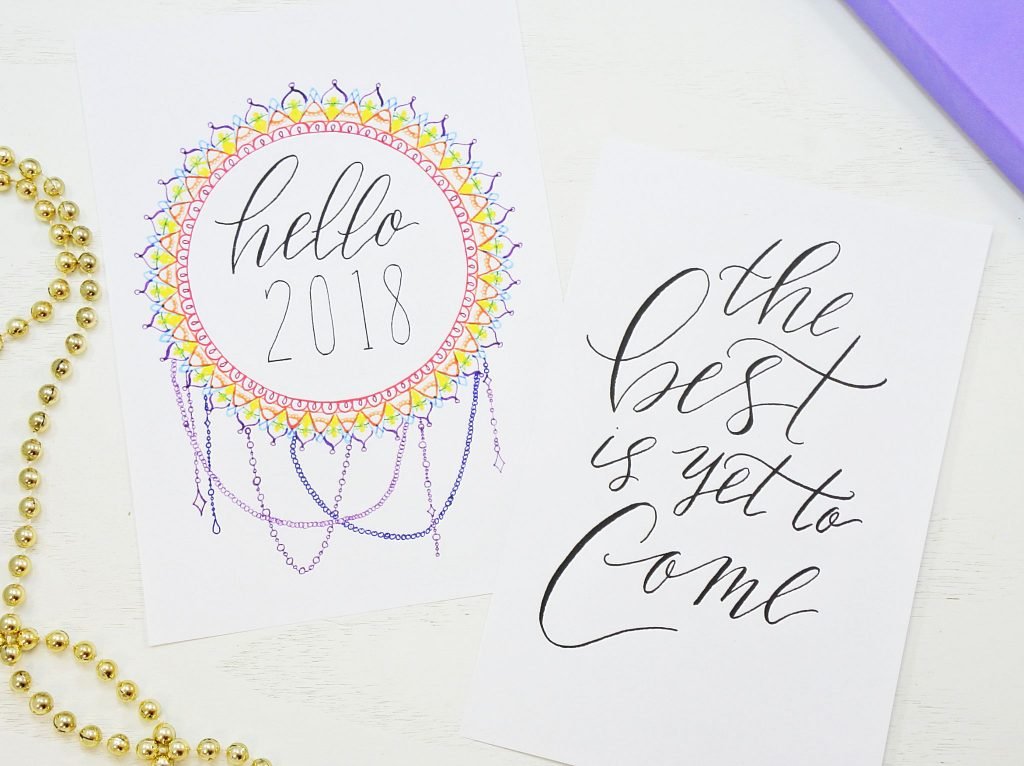 hello
2018
the
best
is yet to
Come